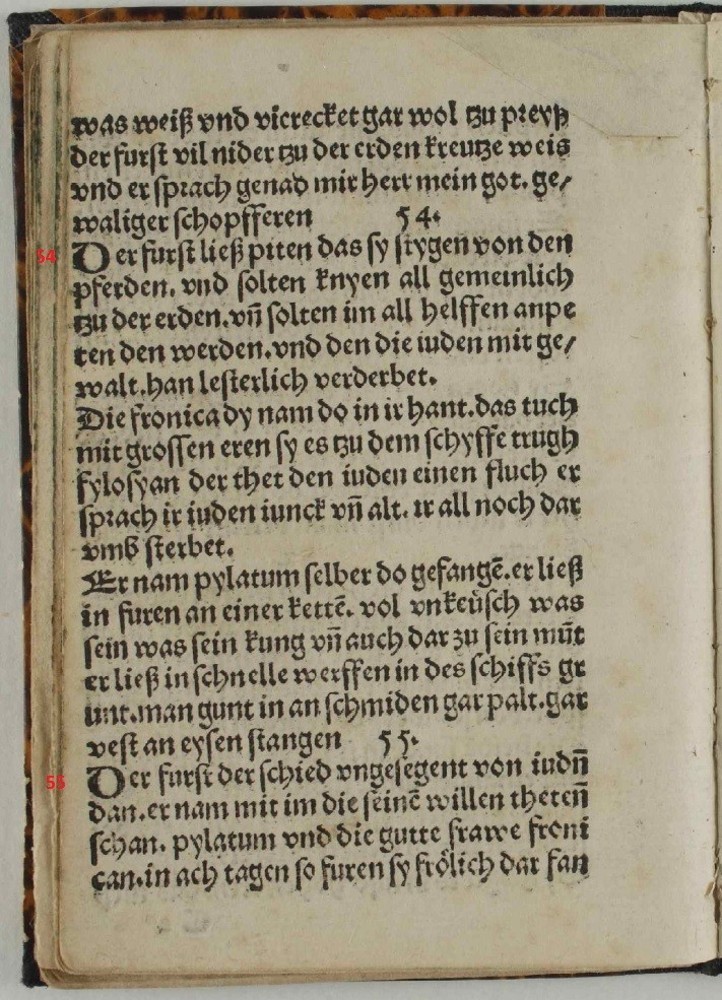 was weiß vnd vierecket gar wol tzu preyß
der furst vil nider tzu der erden kreutze weis
vnd er sprach genad mir herr mein got. ge/
waliger schopfferen 54.
54 Der furst ließ piten das sy stygen von den
pferden. vnd solten knyen all gemeinlich
tzu der erden. vn̄ solten im all helffen anpe
ten den werden. vnd den die iuden mit ge/
walt. han lesterlich verderbet.
Die fronica dy nam do in ir hant. das tuch
mit grossen eren sy es tzu dem schyffe trugh
fylosyan der thet den iuden einen fluch er
sprach ir iuden iunck vn̄ alt. ir all noch dar
vmb sterbet.
Er nam pylatum selber do gefangē. er ließ
in furen an einer kettē. vol vnkeüsch was
sein was sein kung vn̄ auch dar zu sein mūt
er ließ in schnelle werffen in des schiffs gr
unt. man gunt in an schmiden gar palt. gar
vest an eysen stangen 55.
55 Der furst der schied vngesegent von iudn̄
dan. er nam mit im die seinē willen theten̄
schan. pylatum vnd die gutte frawe froni
can. in ach tagen so furen sy frölich dar fan